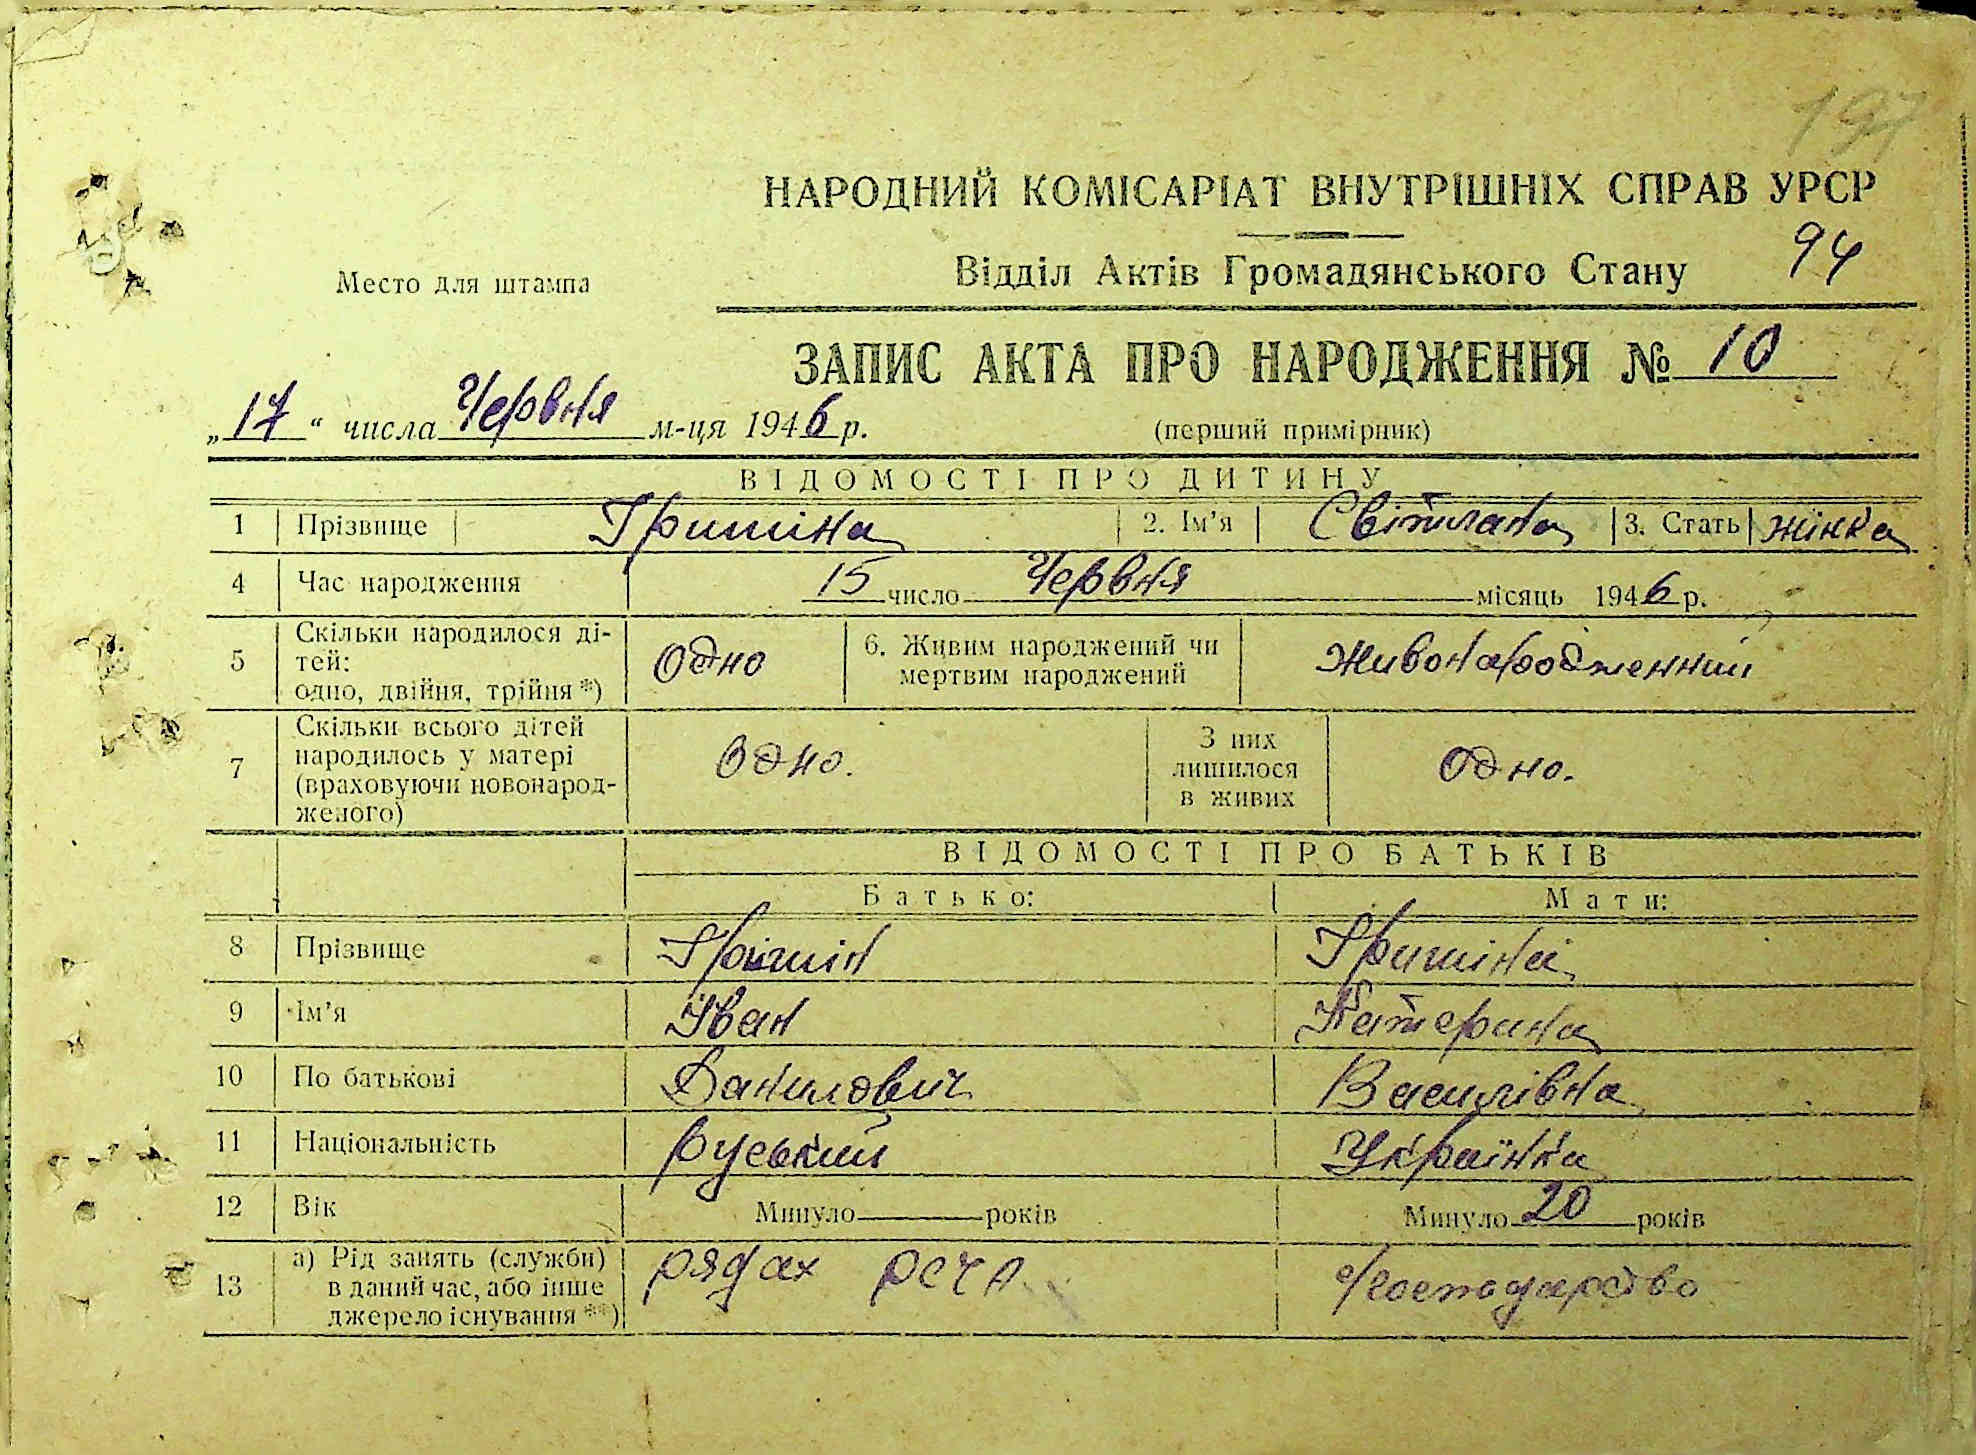 197
НАРОДНИЙ КОМІСАРІАТ ВНУТРІШНІХ СПРАВ УРСР
Відділ Актів Громадянського Стану 94
Место для штампа
ЗАПИС АКТА ПРО НАРОДЖЕННЯ № 10
„17“ числа Червня м-ця 1946 р.
(перший примірник)
ВІДОМОСТІ ПРО ДИТИНУ
1 Прізвище Гришіна 2. Ім’я Світлана 3. Стать жінка
4 Час народження 15 число Червня місяць 1946 р.
5 Скільки народилося ді-
тей:
одно, двійня, трійня *) Одно 6. Живим народжений чи
мертвим народжений живонародженний
7 Скільки всього дітей
народилось у матері
(враховуючи новонарод-
женого) Одно. З них
лишилося
в живих Одно.
ВІДОМОСТІ ПРО БАТЬКІВ
Батько: Мати:
8 Прізвище Грішін Гришіна
9 Ім’я Іван Катерина
10 По батькові Данилович Василівна
11 Національність Руський Українка
12 Вік Минуло років Минуло 20 років
13 а) Рід занять (служби)
в даний час, або інше
джерело існування **) рядах РСЧА господарство